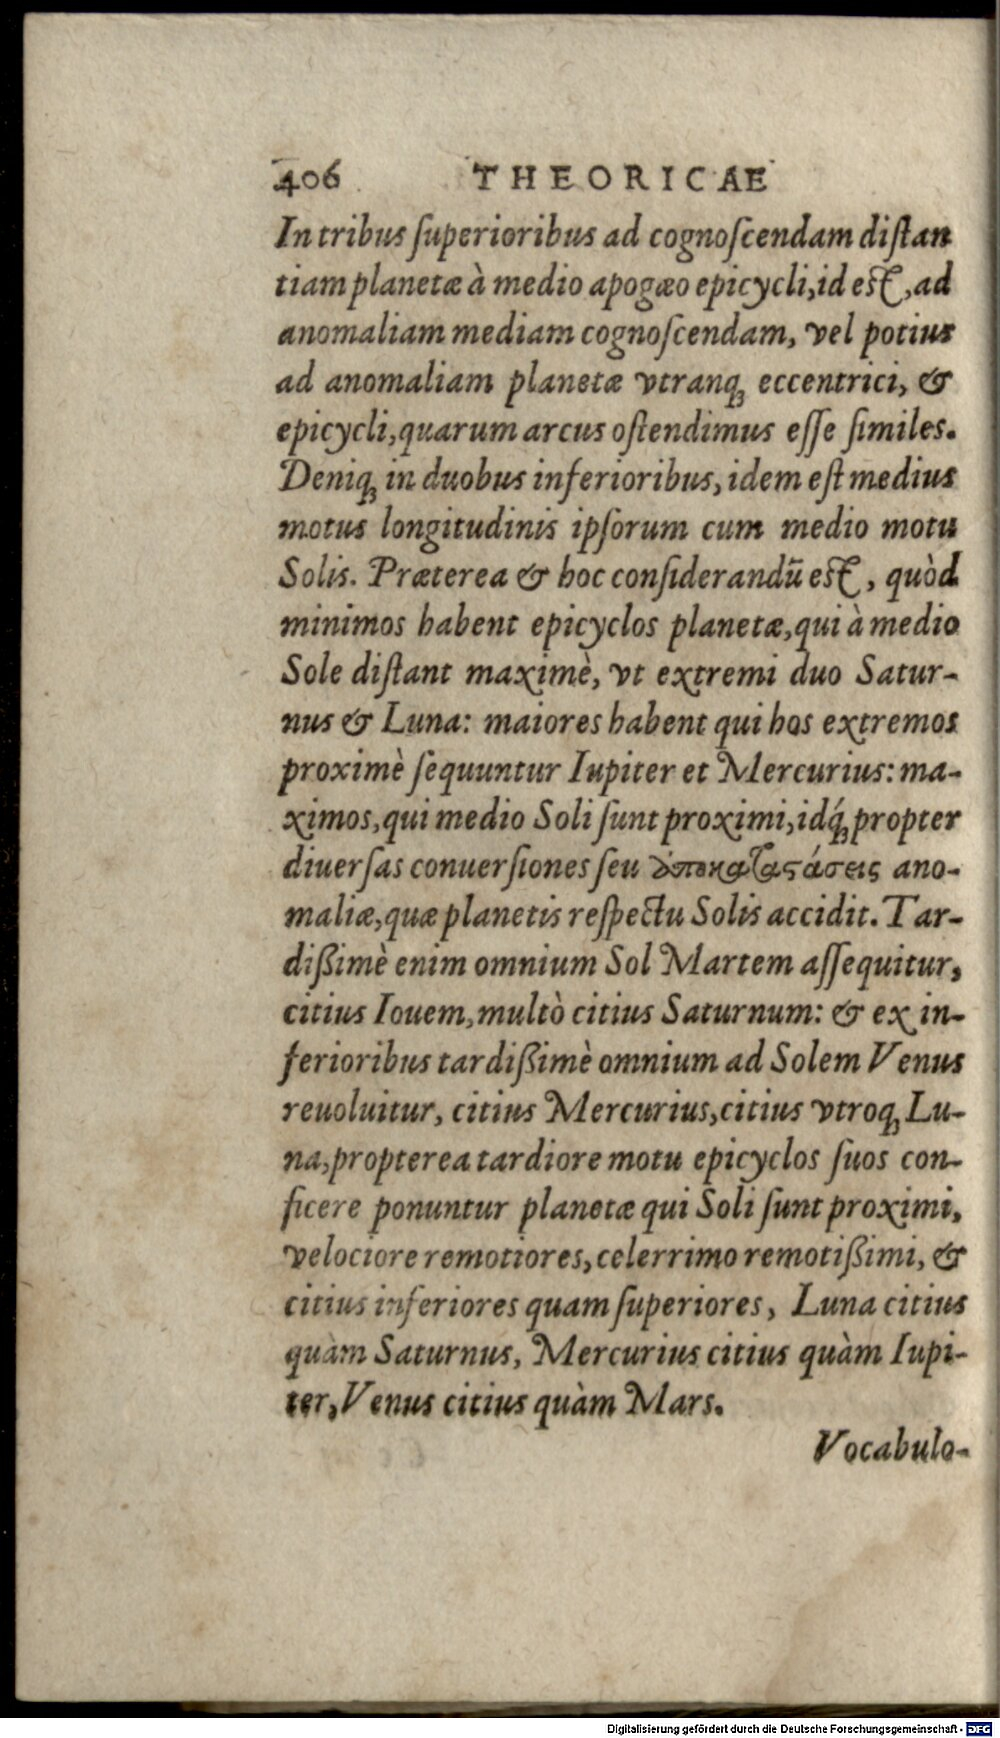 406 THEORICAE
In tribus ſuperioribus ad cognoſcendam diſtan
tiam planetæ à medio apogæo epicycli, id eſt, ad
anomaliam mediam cognoſcendam, vel potius
ad anomaliam planetæ vtranqꝫ eccentrici, &
epicycli, quarum arcus oſtendimus eſſe ſimiles.
Deniqꝫ in duobus inferioribus, idem eſt medius
motus longitudinis ipſorum cum medio motu
Solis. Præterea & hoc conſiderandũ eſt, quòd
minimos habent epicyclos planetæ, qui à medio
Sole diſtant maximè, vt extremi duo Satur-
nus & Luna: maiores habent qui hos extremos
proximè ſequuntur Iupiter et Mercurius: ma-
ximos, qui medio Soli ſunt proximi, idq́ꝫ propter
diuerſas conuerſiones ſeu ἀποκαταϛάσεις ano-
maliæ, quæ planetis reſpectu Solis accidit. Tar-
dißimè enim omnium Sol Martem aſſequitur,
citius Iouem, multò citius Saturnum: & ex in-
ferioribus tardißimè omnium ad Solem Venus
reuoluitur, citius Mercurius, citius vtroqꝫ Lu-
na, propterea tardiore motu epicyclos ſuos con-
ficere ponuntur planetæ qui Soli ſunt proximi,
velociore remotiores, celerrimo remotißimi, &
citius inferiores quam ſuperiores, Luna citius
quàm Saturnus, Mercurius citius quàm Iupi-
ter, Venus citius quàm Mars.
Vocabulo-
Digitalisierung gefördert durch die Deutsche Forschungsgemeinschaft - DFG